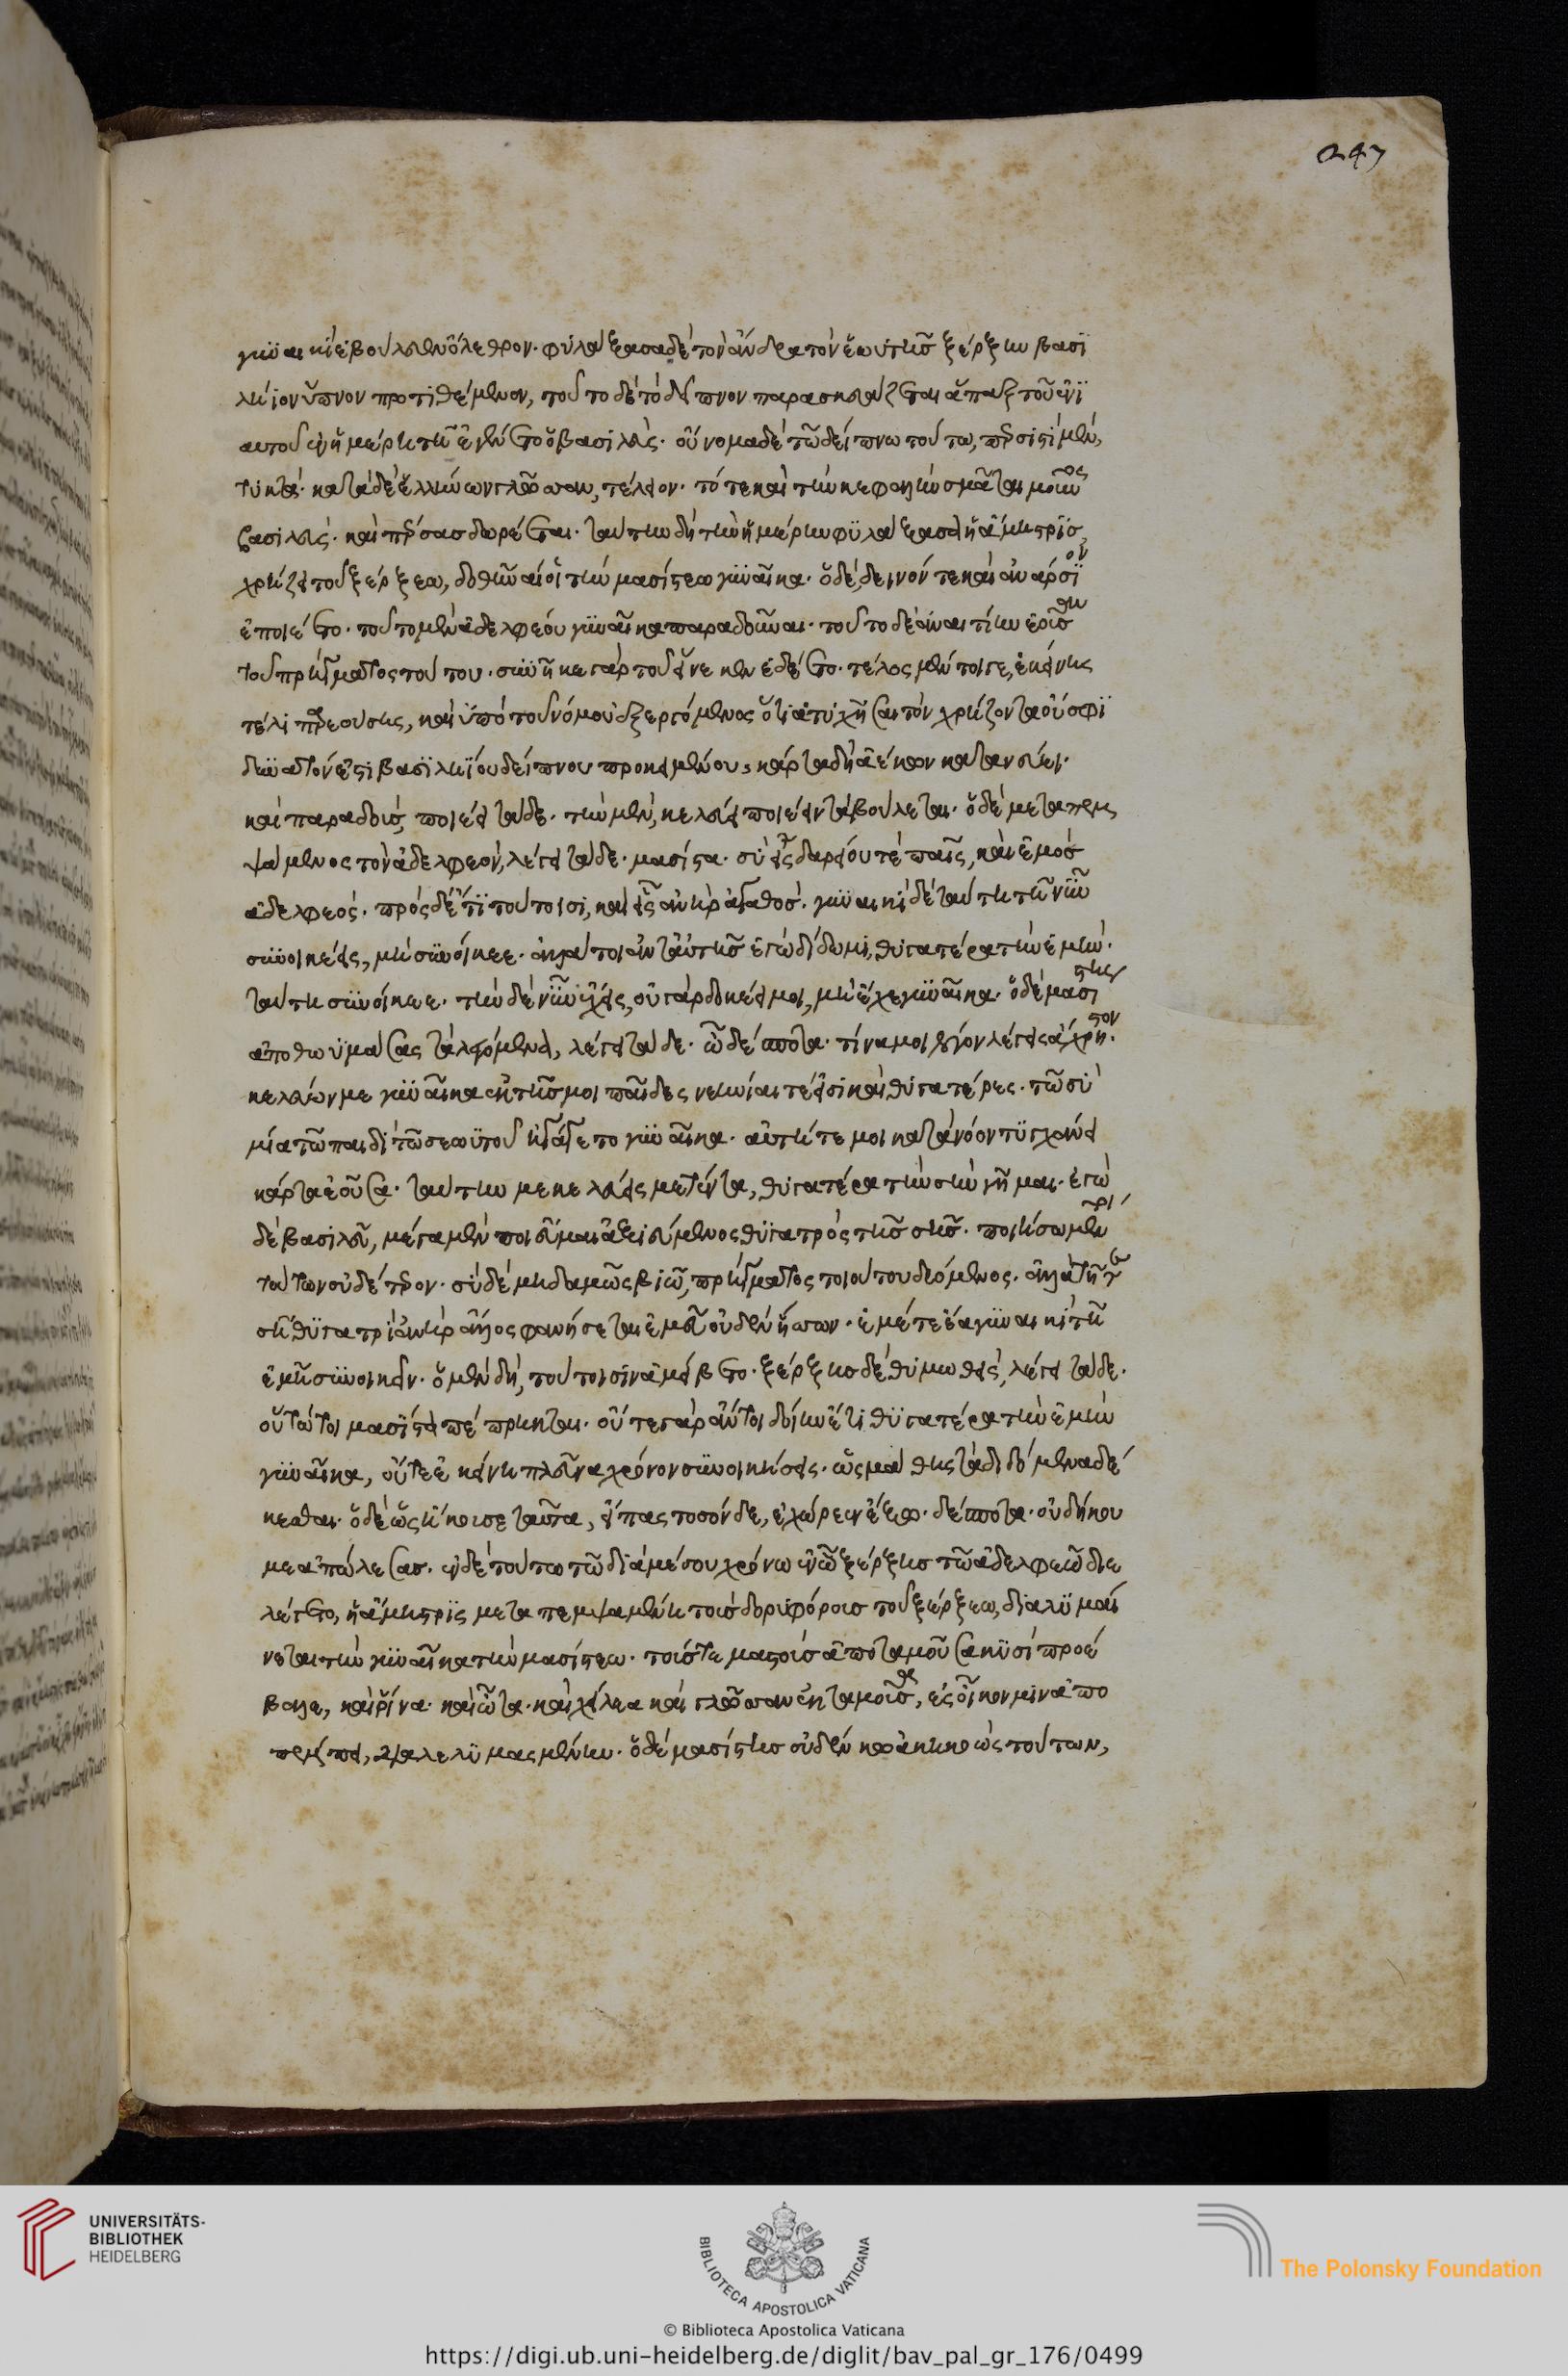 247
γυναικὶ ἐβούλευεν ὄλεθρον· φυλάξασα δὲ τὸν ἄνδρα τὸν ἑωυτῆς ξέρξην βασι
λήϊον δεῖπνον προτιθέμενον, τοῦτο δὲ τὸ δεῖπνον παρασκευάζεται ἅπαξ τοῦ ἐνι
αυτοῦ ἐν ἡμέρῃ τῇ ἐγένετο ὁ βασιλεύς· οὔνομα δὲ τῷ δείπνῳ τούτῳ, περσιστὶ μὲν,
τυκτά· κατὰ δὲ ἑλλήνων γλῶσσαν, τέλειον· τότε καὶ τὴν κεφαλὴν σμᾶται μοῦνος
βασιλεύς· καὶ πέρσας δωρέεται· ταύτην δὴ τὴν ἡμέρην φυλάξασα ἡ ἄμηστρις,
χρηΐζει τοῦ ξέρξεω, δοθῆναί οἱ τὴν μασίστεω γυναῖκα· ὁ δὲ, δεινόν τε καὶ ἀνάρσιον
ἐποιέετο· τοῦτο μὲν ἀδελφεοῦ γυναῖκα παραδοῦναι· τοῦτο δὲ ἀναιτίην ἐοῦσαν
τοῦ πρήγματος τούτου· συνῆκε γὰρ τοῦ εἵνεκεν ἐδέετο· τέλος μέντοι γε, ἐκείνης
τε λιπαρεούσης, καὶ ὑπὸ τοῦ νόμου ἐξεργόμενος ὅτι ἀτυχῆσαι τὸν χρηΐζοντα οὔ σφι
δυνατόν ἐστι βασιληΐου δείπνου προκειμένου, κάρτα δὴ ἀέκων κατανεύει·
καὶ παραδοὺς, ποιέει τάδε· τὴν μὲν, κελεύει ποιέειν τὰ βούλεται· ὁ δὲ μεταπεμ
ψάμενος τὸν ἀδελφεὸν, λέγει τάδε· μασίστα· σὺ εἶς δαρείου τε παῖς, καὶ ἐμὸς
ἀδελφεός· πρὸς δὲ ἔτι τούτοισι, καὶ εἶς ἀνὴρ ἀγαθός· γυναικὶ δὲ ταύτῃ τῇ νῦν
συνοικέεις, μὴ συνοίκεε· ἀλλά τοι ἀντ' αὐτῆς ἐγὼ δίδωμι, θυγατέρα τὴν ἐμήν·
ταύτῃ συνοίκεε· τὴν δὲ νῦν ἔχεις, οὐ γὰρ δοκέει μοι, μὴ ἔχε γυναῖκα· ὁ δὲ μασίστης
ἀποθωυμάσας τὰ λεγόμενα, λέγει τάδε· ὦ δέσποτα· τίνα μοι λόγον λέγεις ἄχρηστον·
κελεύων με γυναῖκα ἐκ τῆς μοι παῖδες νεηνίαι τέ εἰσι καὶ θυγατέρες· τῶν σὺ
μίαν τῷ παιδὶ τῷ σεωυτοῦ ἠγάγετο γυναῖκα· αὐτή τέ μοι κατὰ νόον τυγχάνει
κάρτα ἐοῦσα· ταύτην με κελεύεις μετέντα, θυγατέρα τὴν σὴν γῆμαι· ἐγὼ
δὲ βασιλεῦ, μέγα μὲν ποιεῦμαι ἀξιεύμενος θυγατρὸς τῆς σῆς· ποιήσω μέντοι
τούτων οὐδέτερον· σὺ δὲ μηδαμῶς βιῶ, πρήγματος τοιοῦδε δεόμενος· ἀλλὰ τῇ τε
σῇ θυγατρὶ ἀνὴρ ἄλλος φανήσεται ἐμεῦ οὐδὲν ἥσσων· ἐμέ τε ἔα γυναικὶ τῇ
ἐμῇ συνοικεῖν· ὁ μὲν δὴ, τούτοισιν ἀμείβετο· ξέρξης δὲ θυμωθεὶς, λέγει τάδε·
οὕτω τοι μασίστα πέπρηκται· οὔτε γὰρ ἄν τοι δοίην ἔτι θυγατέρα τὴν ἐμὴν
γυναῖκα, οὔτε ἐκείνῃ πλεῦνα χρόνον συνοικήσεις· ὡς μάθῃς τὰ διδόμενα δέ
κεσθαι· ὁ δὲ ὡς ἤκουσε ταῦτα, εἴπας τοσόνδε, ἐχώρεεν ἔξω· δέσποτα· οὐ δή κου
με ἀπώλεσας· ἐν δὲ τούτῳ τῷ διὰ μέσου χρόνῳ ἐν ᾧ ξέρξης τῷ ἀδελφεῷ διε
λέγετο, ἡ ἄμηστρις μεταπεμψαμένη τοὺς δορυφόρους τοῦ ξέρξεω, διαλυμαί
νεται τὴν γυναῖκα τὴν μασίστεω· τούς τε μαστοὺς ἀποταμοῦσα κυσὶ προέ
βαλε, καὶ ῥῖνα· καὶ ὦτα· καὶ χείλεα καὶ γλῶσσαν ἐκταμοῦσα, ἐς οἶκόν μιν ἀπο
πέμπει, διαλελυμασμένην· ὁ δὲ μασίστης οὐδέν κω ἀκηκοὼς τούτων,
UNIVERSITÄTS-
BIBLIOTHEK
HEIDELBERG
BIBLIOTECA APOSTOLICA VATICANA
© Biblioteca Apostolica Vaticana
The Polonsky Foundation
https://digi.ub.uni-heidelberg.de/diglit/bav_pal_gr_176/0499